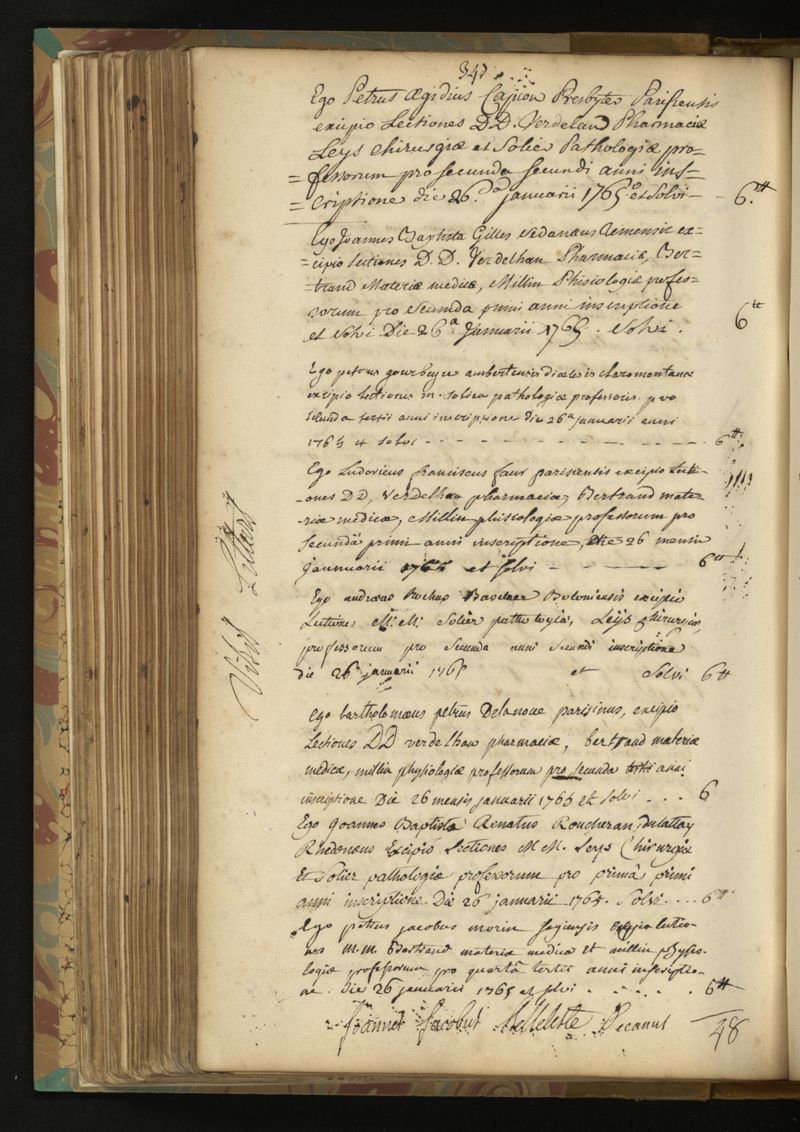 341
Ego Petrus Ægidius Cajion Presbyter Parisiensis
excipio Lectiones D.D. Verdelan Pharmaciæ
Leys chirurgiæ et Solier Pathologiæ pro=
=fessorum pro secunda secundi anni ins=
=criptione die 26.a januarii 1765. et Solvi - 6.tt
Ego Joannes Baptista Gilles Sedanæus Remensis ex=
=cipio lectiones D.D. Verdelhan Pharmaciæ, Ber=
=trand Materiæ medicæ, Millin Phisiologiæ profes=
sorum pro secunda primi anni inscriptione
et solvi. Die 26a Januarii 1765. Solvi. 6tt
Ego petrus gourbeyre ambertensis diœcesis claromontanæ
excipio lectiones m. solier pathologiæ professoris pro
secunda tertii anni inscriptione die 26a januarii anni
1765 et solvi - - - - - - - - 6tt
Ego Ludovicus franciscus faur parisiensis excipio Lecti-
-ones DD, Verdelhan pharmaciæ, Bertrand mate-
riæ medicæ, Millin phisiologiæ professorum pro
secundâ primi anni inscriptione, die 26 mensis
Januarii 1765 et solvi - - - - 6tt
Ego andræas Rochus Basclaer Boloniensis excipio
Lectiones M.M. Solier pathologiæ, Leys chirurgiæ,
professorum pro secunda anni secundi inscriptione
die 26a januarii 1765 et Solvi 6tt
Ego bartholomæus petrus Delanoue parisinus, excipio
Lectiones DD verdelhan pharmaciæ, bertrand materiæ
medicæ, millin physiologiæ professorum pro secunda anni
inscriptione Die 26 mensis januarii 1765 et solvi . . . 6
Ego Joannes Baptista Renatus Roucheran dulattay
Rhedonæus Excipio Lectiones M M. Leys Chirurgiæ
Et Solier pathologiæ professorum pro primâ primi
anni inscriptione. Die 26 januarii 1765. Solvi. . . . 6tt
Ego petrus jacobus morin sagiensis excipio lectio-
nes m.m. Bertrand materiæ medicæ et millin physio-
logiæ professorum pro quartâ tertii anni inscriptio-
ne. die 26 januarii 1765 et solvi . . . . 6tt
Joannes Jacobus Belleteste Decanus 48